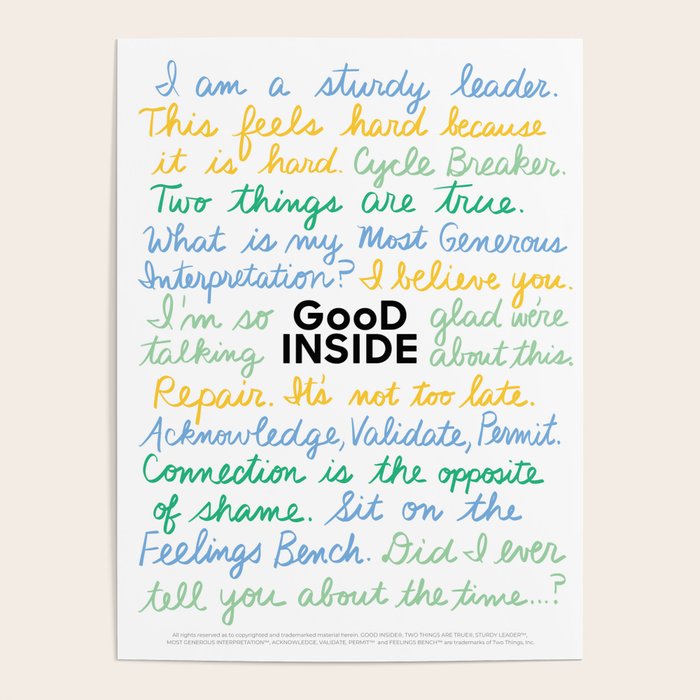 I am a sturdy leader.
This feels hard because
it is hard. Cycle Breaker.
Two things are true.
What is my Most Generous
Interpretation? I believe you.
I'm so GooD glad we're
talking INSIDE about this.
Repair. It's not too late.
Acknowledge, Validate, Permit.
Connection is the opposite
of shame. Sit on the
Feelings Bench. Did I ever
tell you about the time...?
All rights reserved as to copyrighted and trademarked material herein. GOOD INSIDE®, TWO THINGS ARE TRUE®, STURDY LEADER™,
MOST GENEROUS INTERPRETATION™, ACKNOWLEDGE, VALIDATE, PERMIT™ and FEELINGS BENCH™ are trademarks of Two Things, Inc.